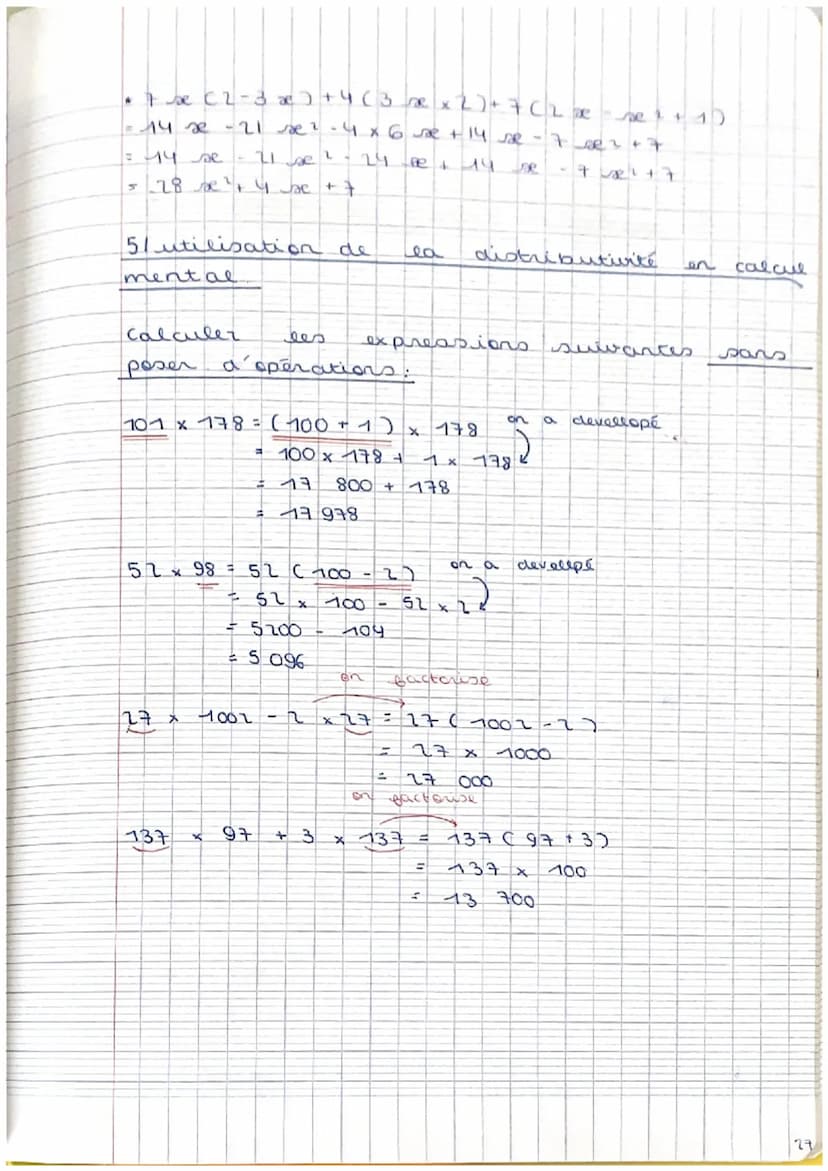 • 7 x (2 - 3 x) + 4 (3 x × 2) + 7 (2 x - x² + 1)
= 14 x - 21 x² - 4 × 6 x + 14 x - 7 x² + 7
= 14 x - 21 x² - 24 x + 14 x - 7 x² + 7
= -28 x² + 4 x + 7
5/ utilisation de la distributivité en calcul
mental
Calculer les expressions suivantes sans
poser d'opérations :
101 × 178 = (100 + 1) × 178 on a devellopé
= 100 × 178 + 1 × 178
= 17 800 + 178
= 17 978
52 × 98 = 52 (100 - 2) on a develepé
= 52 × 100 - 52 × 2
= 5200 - 104
= 5 096
on factorise
27 × 1002 - 2 × 27 = 27 (1002 - 2)
= 27 × 1000
= 27 000
on factorise
137 × 97 + 3 × 137 = 137 (97 + 3)
= 137 × 100
= 13 700
27